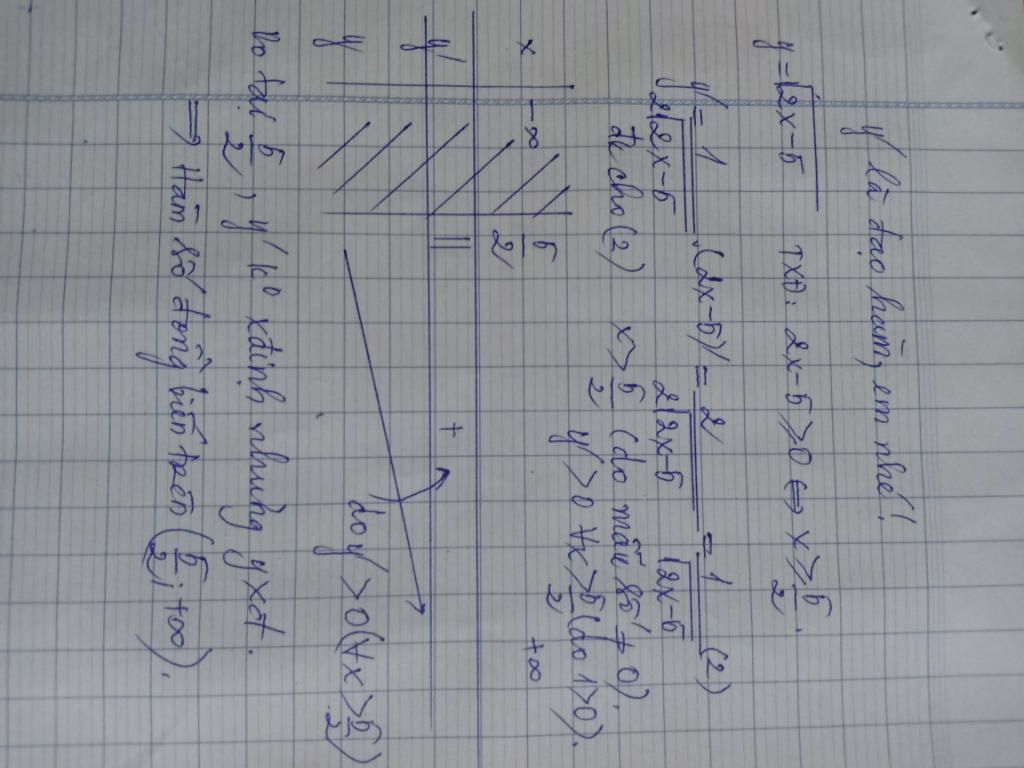 y' là đạo hàm, em nhé!
y = √(2x-5) TXĐ: 2x-5 ≥ 0 ⇔ x ≥ 5/2.
y' = 1/(2√(2x-5)) . (2x-5)' = 2/(2√(2x-5)) = 1/√(2x-5) (2)
để cho (2) x > 5/2 (do mẫu số ≠ 0).
y' > 0 ∀x > 5/2 (do 1 > 0).
x -∞ 5/2 +∞
y' || +
y do y' > 0 (∀x > 5/2)
Do tại 5/2, y' k° xđịnh nhưng y xđt.
⇒ Hàm số đồng biến trên (5/2; +∞).